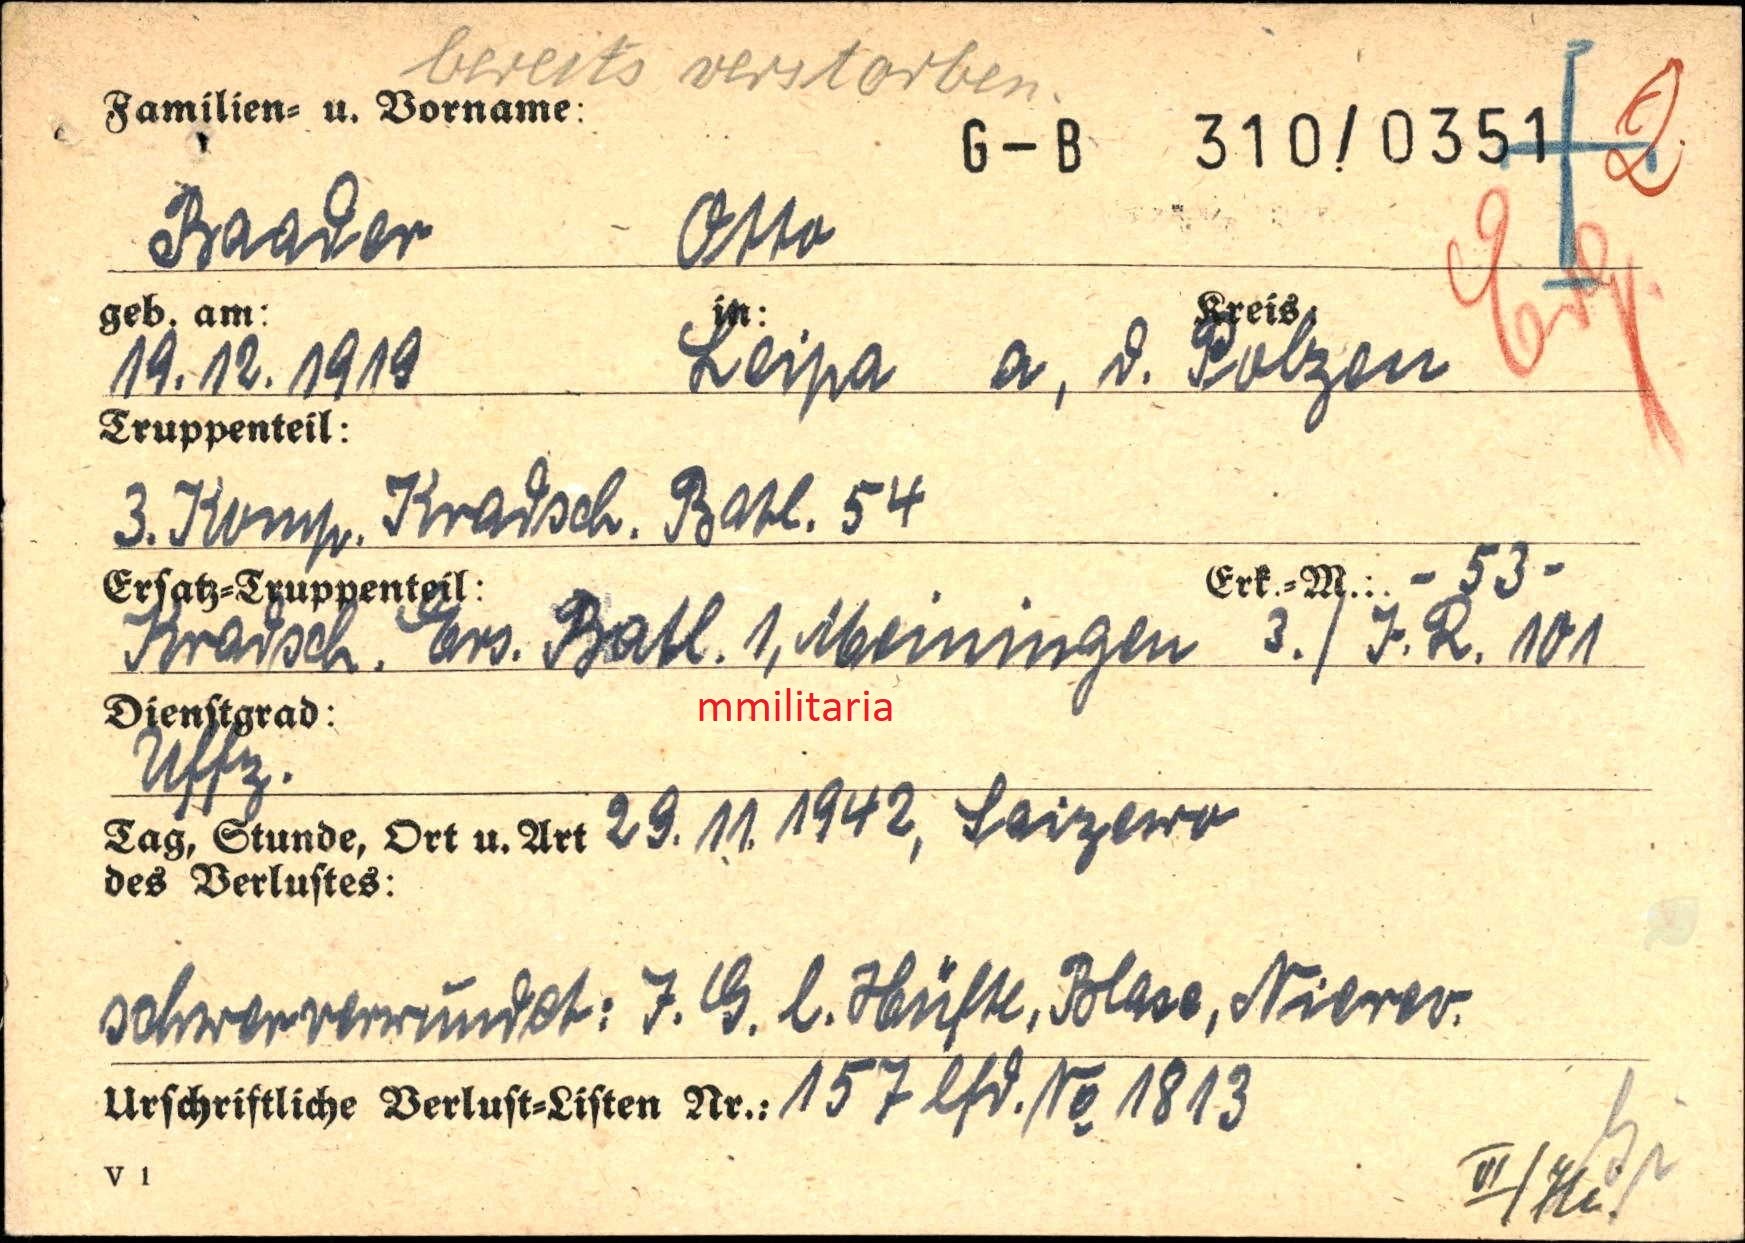 bereits verstorben.
Familien- u. Vorname:
G-B 310/0351
Baader Otto
geb. am: in: Kreis:
19.12.1919 Leipa a, d. Polzen
Truppenteil:
3. Komp. Kradsch. Batl. 54
Ersatz-Truppenteil: Erk.-M.: -53-
Kradsch. Ers. Batl. 1, Meiningen 3./J.R. 101
Dienstgrad:
mmilitaria
Uffz.
Tag, Stunde, Ort u. Art 29.11.1942, Saizewo
des Verlustes:
schwerverwundet: J. G. l. Hüfte, Blase, Nieren.
Urschriftliche Verlust-Listen Nr.: 157 lfd. No 1813
V 1
VI/